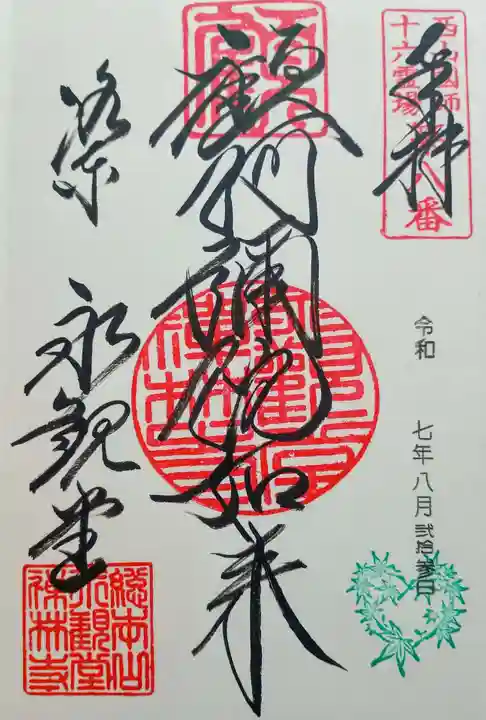 奉拝
西山国師
十六霊場第八番
令和 七年八月弐拾参日
顧阿弥陀如来
洛東 永観堂
総本山
永観堂
禅林寺